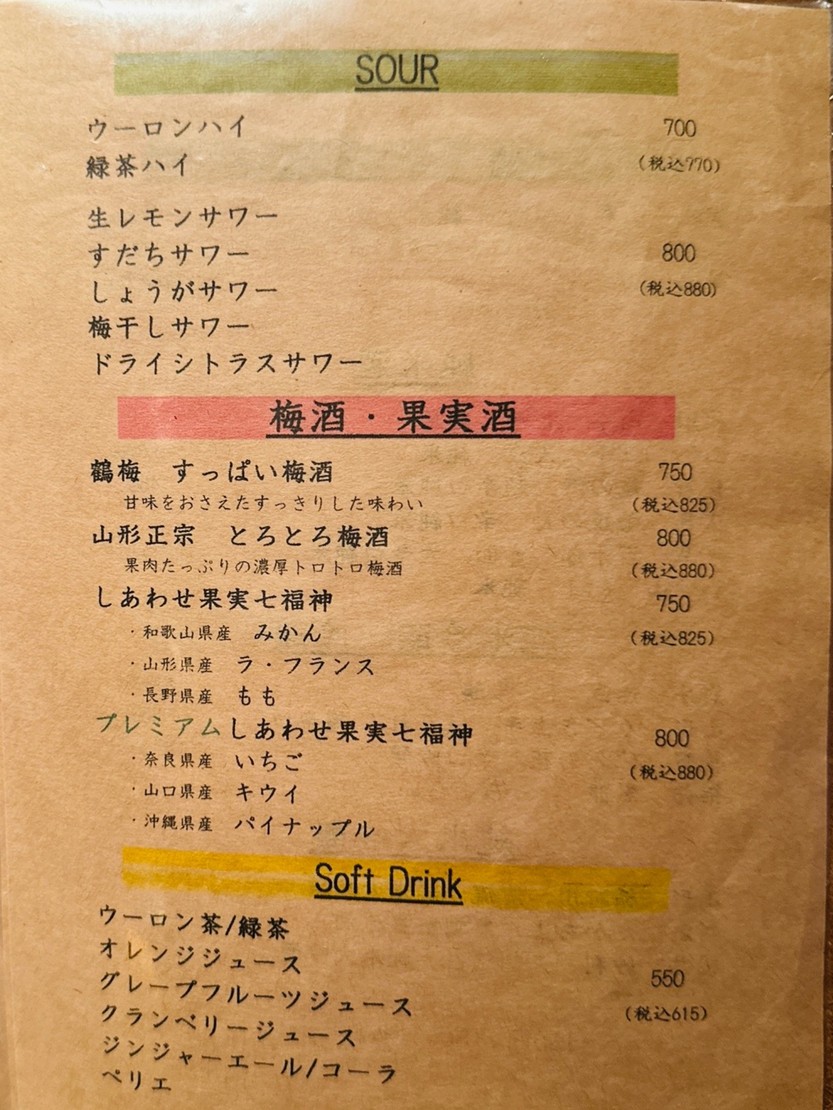 SOUR
ウーロンハイ 700
緑茶ハイ (税込770)
生レモンサワー
すだちサワー 800
しょうがサワー (税込880)
梅干しサワー
ドライシトラスサワー
梅酒・果実酒
鶴梅 すっぱい梅酒 750
甘味をおさえたすっきりした味わい (税込825)
山形正宗 とろとろ梅酒 800
果肉たっぷりの濃厚トロトロ梅酒 (税込880)
しあわせ果実七福神 750
・和歌山県産 みかん (税込825)
・山形県産 ラ・フランス
・長野県産 もも
プレミアムしあわせ果実七福神 800
・奈良県産 いちご (税込880)
・山口県産 キウイ
・沖縄県産 パイナップル
Soft Drink
ウーロン茶/緑茶
オレンジジュース
グレープフルーツジュース 550
クランベリージュース (税込615)
ジンジャーエール/コーラ
ペリエ